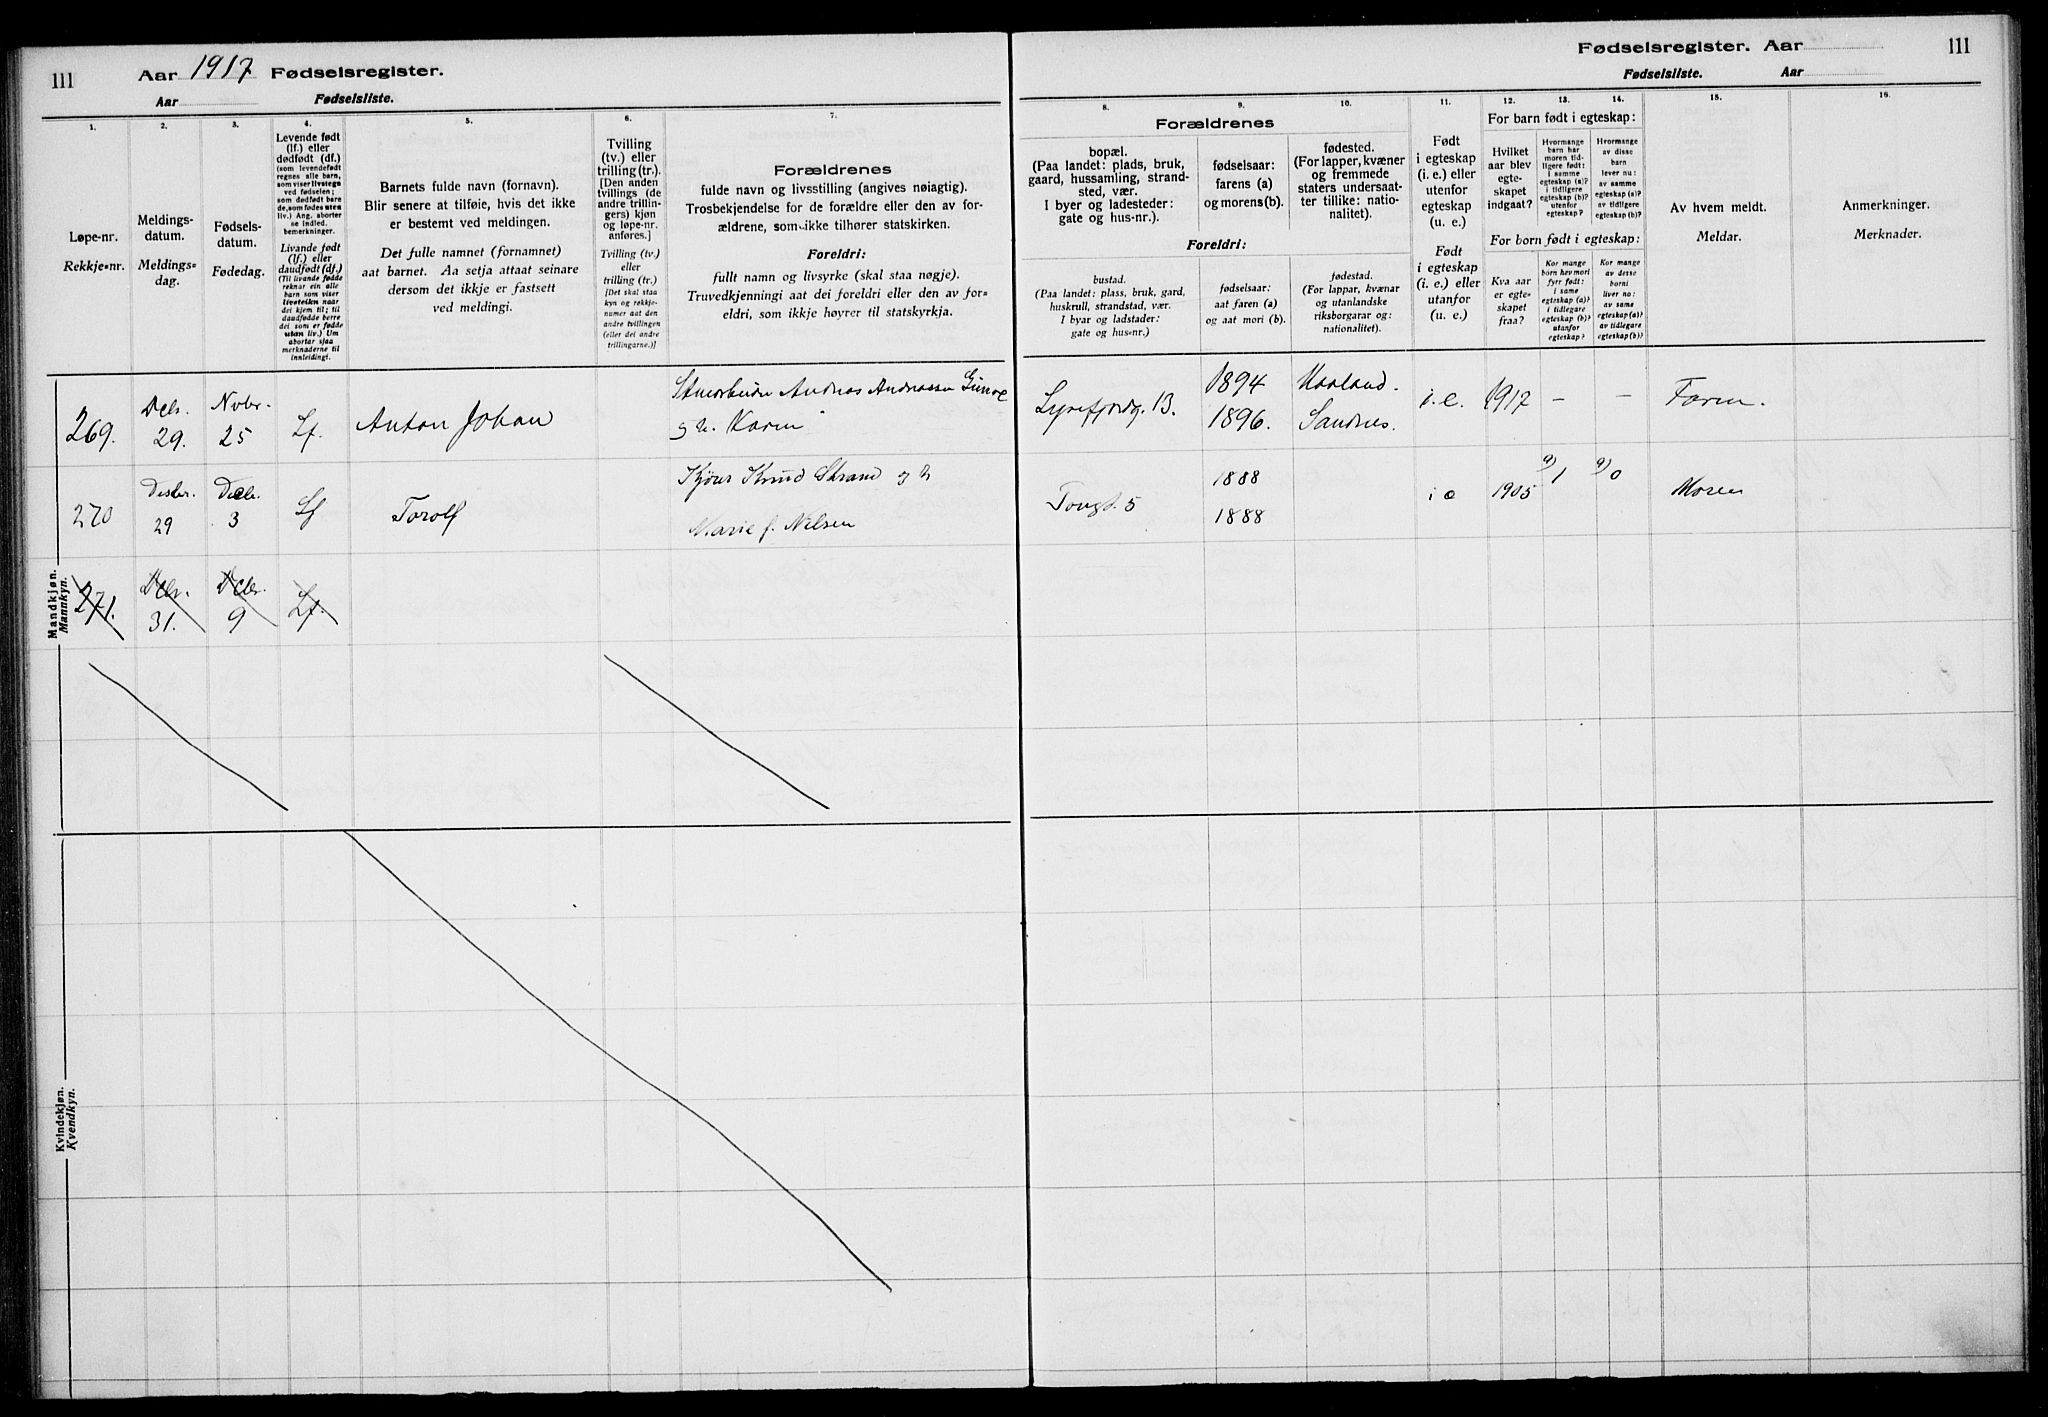 111
Aar 1917 Fødselsregister.
Aar Fødselsliste.
1. 2. 3. 4. 5. 6. 7.
Løpe-nr.
Rekkje=nr.
Meldings-
datum.
Meldings=
dag.
Fødsels-
datum.
Fødedag.
Levende født
(lf.) eller
dødfødt (df.)
(som levendefødt
regnes alle barn,
som viser livstegn
ved fødselen;
som dødfødt bare
de, som fødes uten
liv.) Ang. aborter
se indled.
bemerkninger.
Livande født
(lf.) eller
daudfødt (df.)
(Til livande fødde
reknar ein alle
barn som viser
livsteikn naar
dei kjem til; til
daudfødde berre
dei som er fødde
utan liv.) Um
abortar sjaa
merknaderne til
innleidingi.
Barnets fulde navn (fornavn).
Blir senere at tilføie, hvis det ikke
er bestemt ved meldingen.
Det fulle namnet (fornamnet)
aat barnet. Aa setja attaat seinare
dersom det ikkje er fastsett
ved meldingi.
Tvilling
(tv.) eller
trilling (tr.).
[Den anden
tvillings (de
andre trillin-
gers) kjøn
og løpe-nr.
anføres.]
Tvilling (tv.)
eller
trilling (tr.)
[Det skal staa
kyn og rekkje-
numer aat den
andre tvillingen
(eller dei andre
trillingarne.)]
Forældrenes
fulde navn og livsstilling (angives nøiagtig).
Trosbekjendelse for de forældre eller den av for-
ældrene, som ikke tilhører statskirken.
Foreldri:
fullt namn og livsyrke (skal staa nøgje).
Truvedkjenningi aat dei foreldri eller den av for=
eldri, som ikkje høyrer til statskyrkja.
Mandkjøn.
Mannkyn.
269. Dcbr. 29. Nvbr. 25 Lf. Anton Johan
Andreas
og h. Karin
270 Desbr. 29 Decbr. 3 Lf Torolf
Kjører Knud Strand og h
Marie f. Nilsen
271. Dcbr. 31. Dcbr. 9 Lf.
Kvindekjøn.
Kvendkyn.
Fødselsregister. Aar 111
Fødselsliste. Aar
8. 9. 10. 11. 12. 13. 14. 15. 16.
Forældrenes
bopæl.
(Paa landet: plads, bruk,
gaard, hussamling, strand-
sted, vær.
I byer og ladesteder:
gate og hus-nr.).
fødselsaar:
farens (a)
og morens (b).
fødested.
(For lapper, kvæner
og fremmede
staters undersaat-
ter tillike: natio-
nalitet).
Foreldri:
bustad.
(Paa landet: plass, bruk, gard,
huskrull, strandstad, vær.
I byar og ladstader:
gate og hus=nr.)
fødselsaar:
aat faren (a)
og aat mori (b).
fødestad.
(For lappar, kvænar
og utanlandske
riksborgarar og:
nationalitet).
Født
i egteskap
(i. e.) eller
utenfor
egteskap
(u. e.)
Født
i egteskap
(i. e.) eller
utanfor
(u. e.)
For barn født i egteskap:
Hvilket
aar blev
egte-
skapet
indgaat?
Hvormange
barn har
moren tid-
ligere født:
i samme
egteskap (a)?
i tidligere
egteskap (b)?
utenfor
egteskap?
Hvormange
av disse
barn
lever nu:
av samme
egteskap (a)?
av tidligere
egteskap (b)?
For born født i egteskap:
Kva aar
er egte-
skapet
fraa?
Kor mange
born hev mori
fyrr født:
i same
egteskap (a)?
i tidlegare
egteskap (b)?
utanfor
egteskap?
Kor mange
av desse
borni
liver no:
av same
egteskap (a)?
av tidlegare
egteskap (b)?
Av hvem meldt.
Meldar.
Anmerkninger.
Merknader.
Lysefjordg. 13. 1894 1896. Sandnes. i.e. 1917 - - Faren.
1888 1888 i e 1905 a) 1 a) 0 Moren